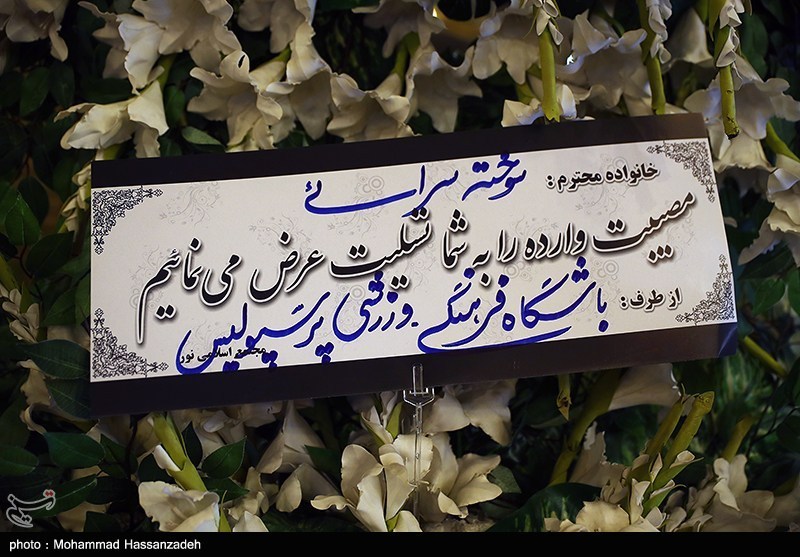 خانواده محترم: سوخته سرائی
مصیبت وارده را به شما تسلیت عرض می نمائیم
از طرف: باشگاه فرهنگی ورزشی پرسپولیس
مجتمع اسلامی نور
تسنیم
photo : Mohammad Hassanzadeh